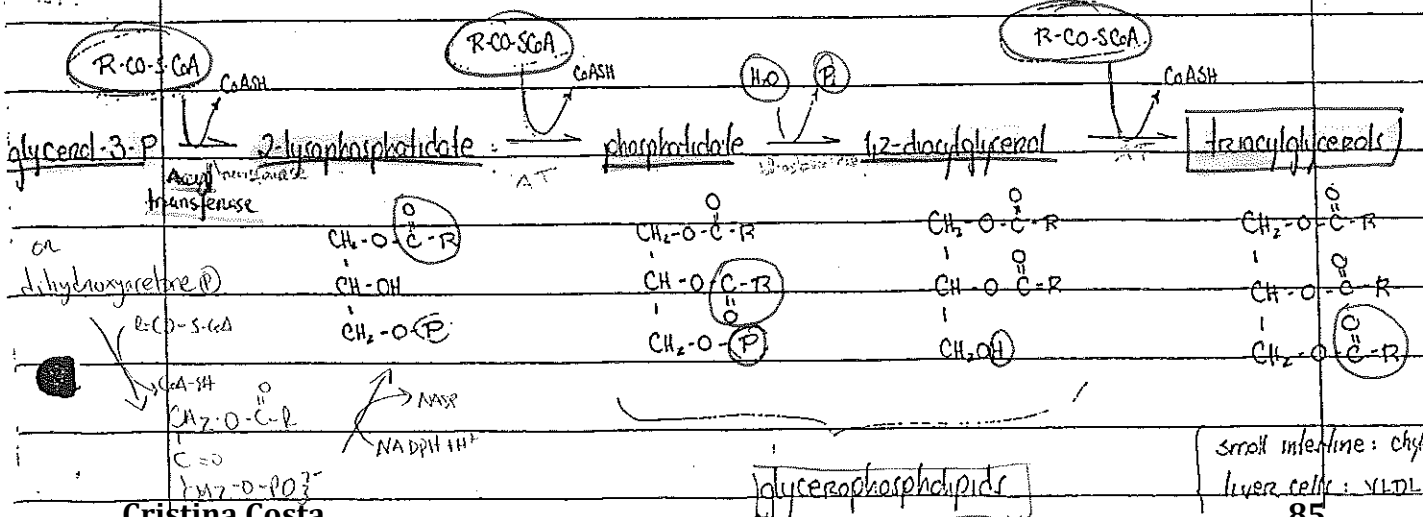 R-CO-S-CoA R-CO-SCoA R-CO-SCoA
CoASH CoASH H2O Pi CoASH
glycerol-3-P → 2-lysophosphatidate → phosphatidate → 1,2-diacylglycerol → triacylglycerols
Acyl transferase AT AT
or
dihydroxyacetone P
R-CO-S-CoA
CoA-SH
CH2-O-C-R
O
C=O
CH2-O-PO3²⁻
NADP
NADPH+H+
O
CH2-O-C-R
CH-OH
CH2-O-P
O
CH2-O-C-R
CH-O-C-R
O
CH2-O-P
O
CH2-O-C-R
O
CH-O-C-R
CH2OH
O
CH2-O-C-R
O
CH-O-C-R
O
CH2-O-C-R
glycerophospholipids
small intestine: chyl
liver cells: VLDL
Cristina Costa 85